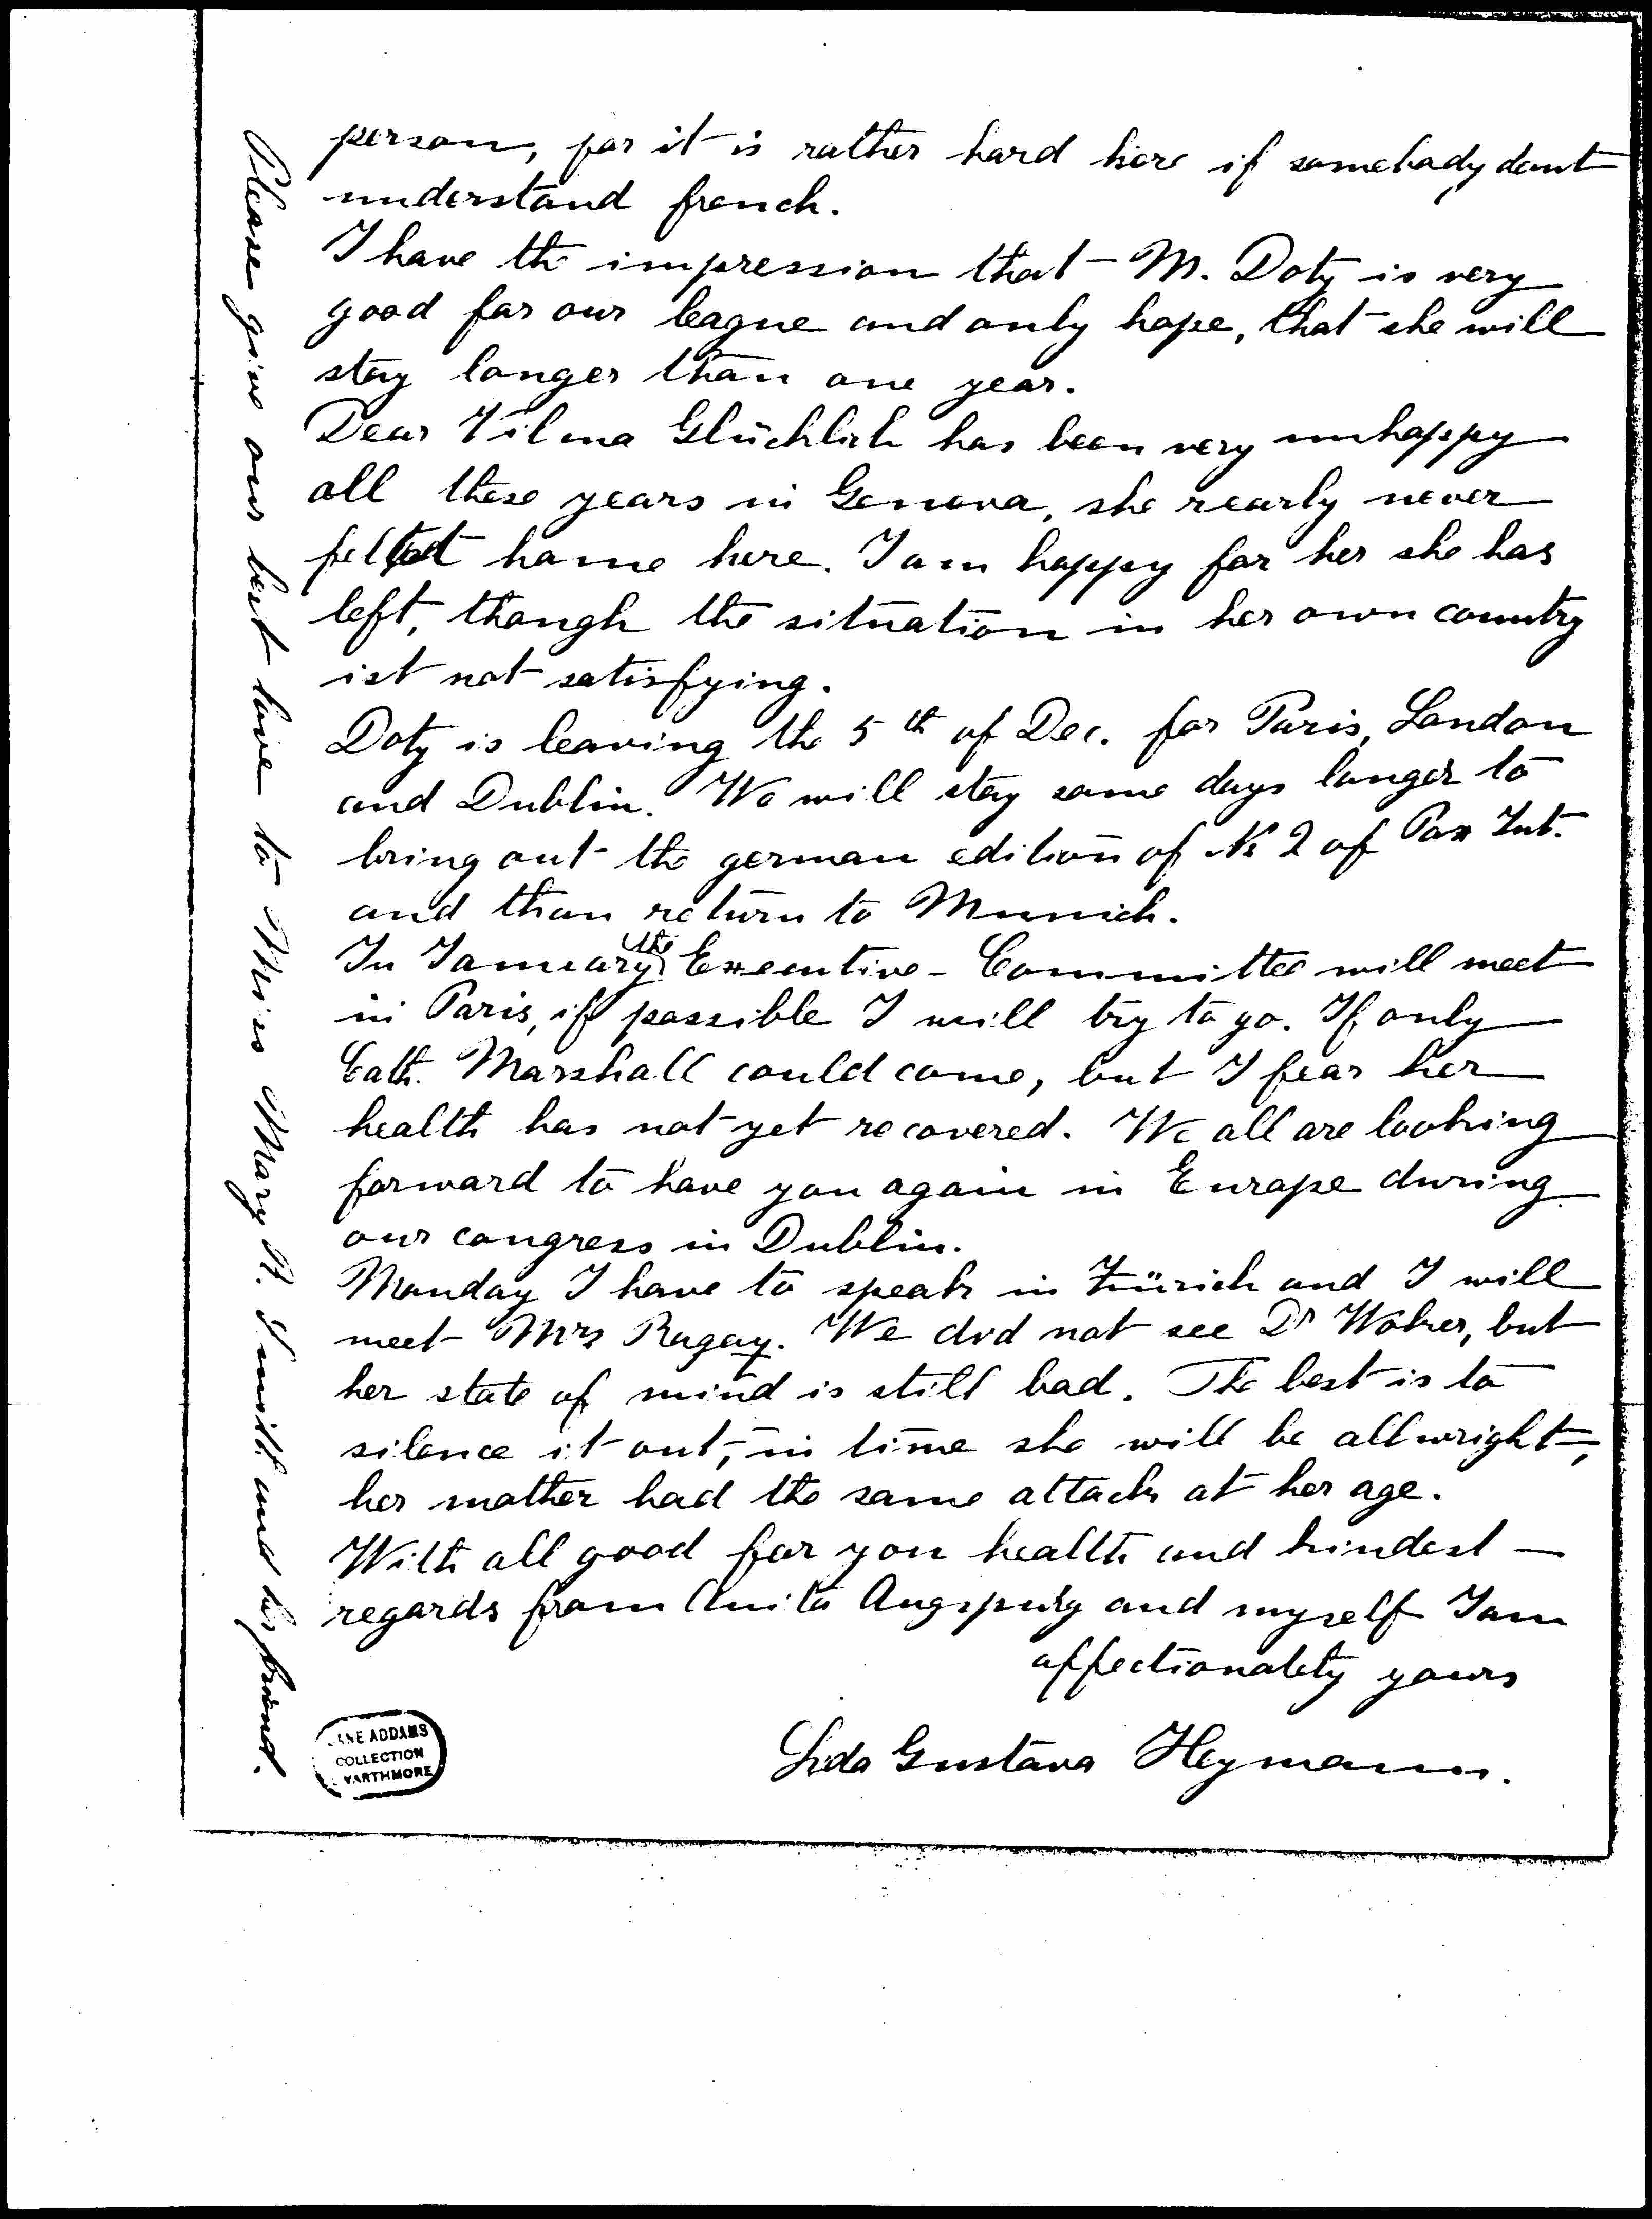 person, for it is rather hard here if somebody dont
understand french.
I have the impression that M. Doty is very
good for our league and only hope, that she will
stay longer than one year.
Dear Vilma Glücklich has been very unhappy
all these years in Geneva, she nearly never
felt at home here. I am happy for her she has
left, though the situation in her own country
ist not satisfying.
Doty is leaving the 5th of Dec. for Paris, London
and Dublin. We will stay some days longer to
bring out the german edition of № 2 of Pax Int.
and than return to Munich.
In January the Executive-Committee will meet
in Paris, if possible I will try to go. If only
Cath. Marshall could come, but I fear her
health has not yet recovered. We all are looking
forward to have you again in Europe during
our congress in Dublin.
Monday I have to speak in Zürich and I will
meet Mrs Ragaz. We did not see Dr Woker, but
her state of mind is still bad. The best is to
silence it out, in time she will be allwright,
her mother had the same attack at her age.
With all good for you health and kindest
regards from Anita Augspurg and myself I am
affectionately yours
Lida Gustava Heymann.
Please give our best love to Miss Mary R. Smith and his friend.
JANE ADDAMS
COLLECTION
SWARTHMORE